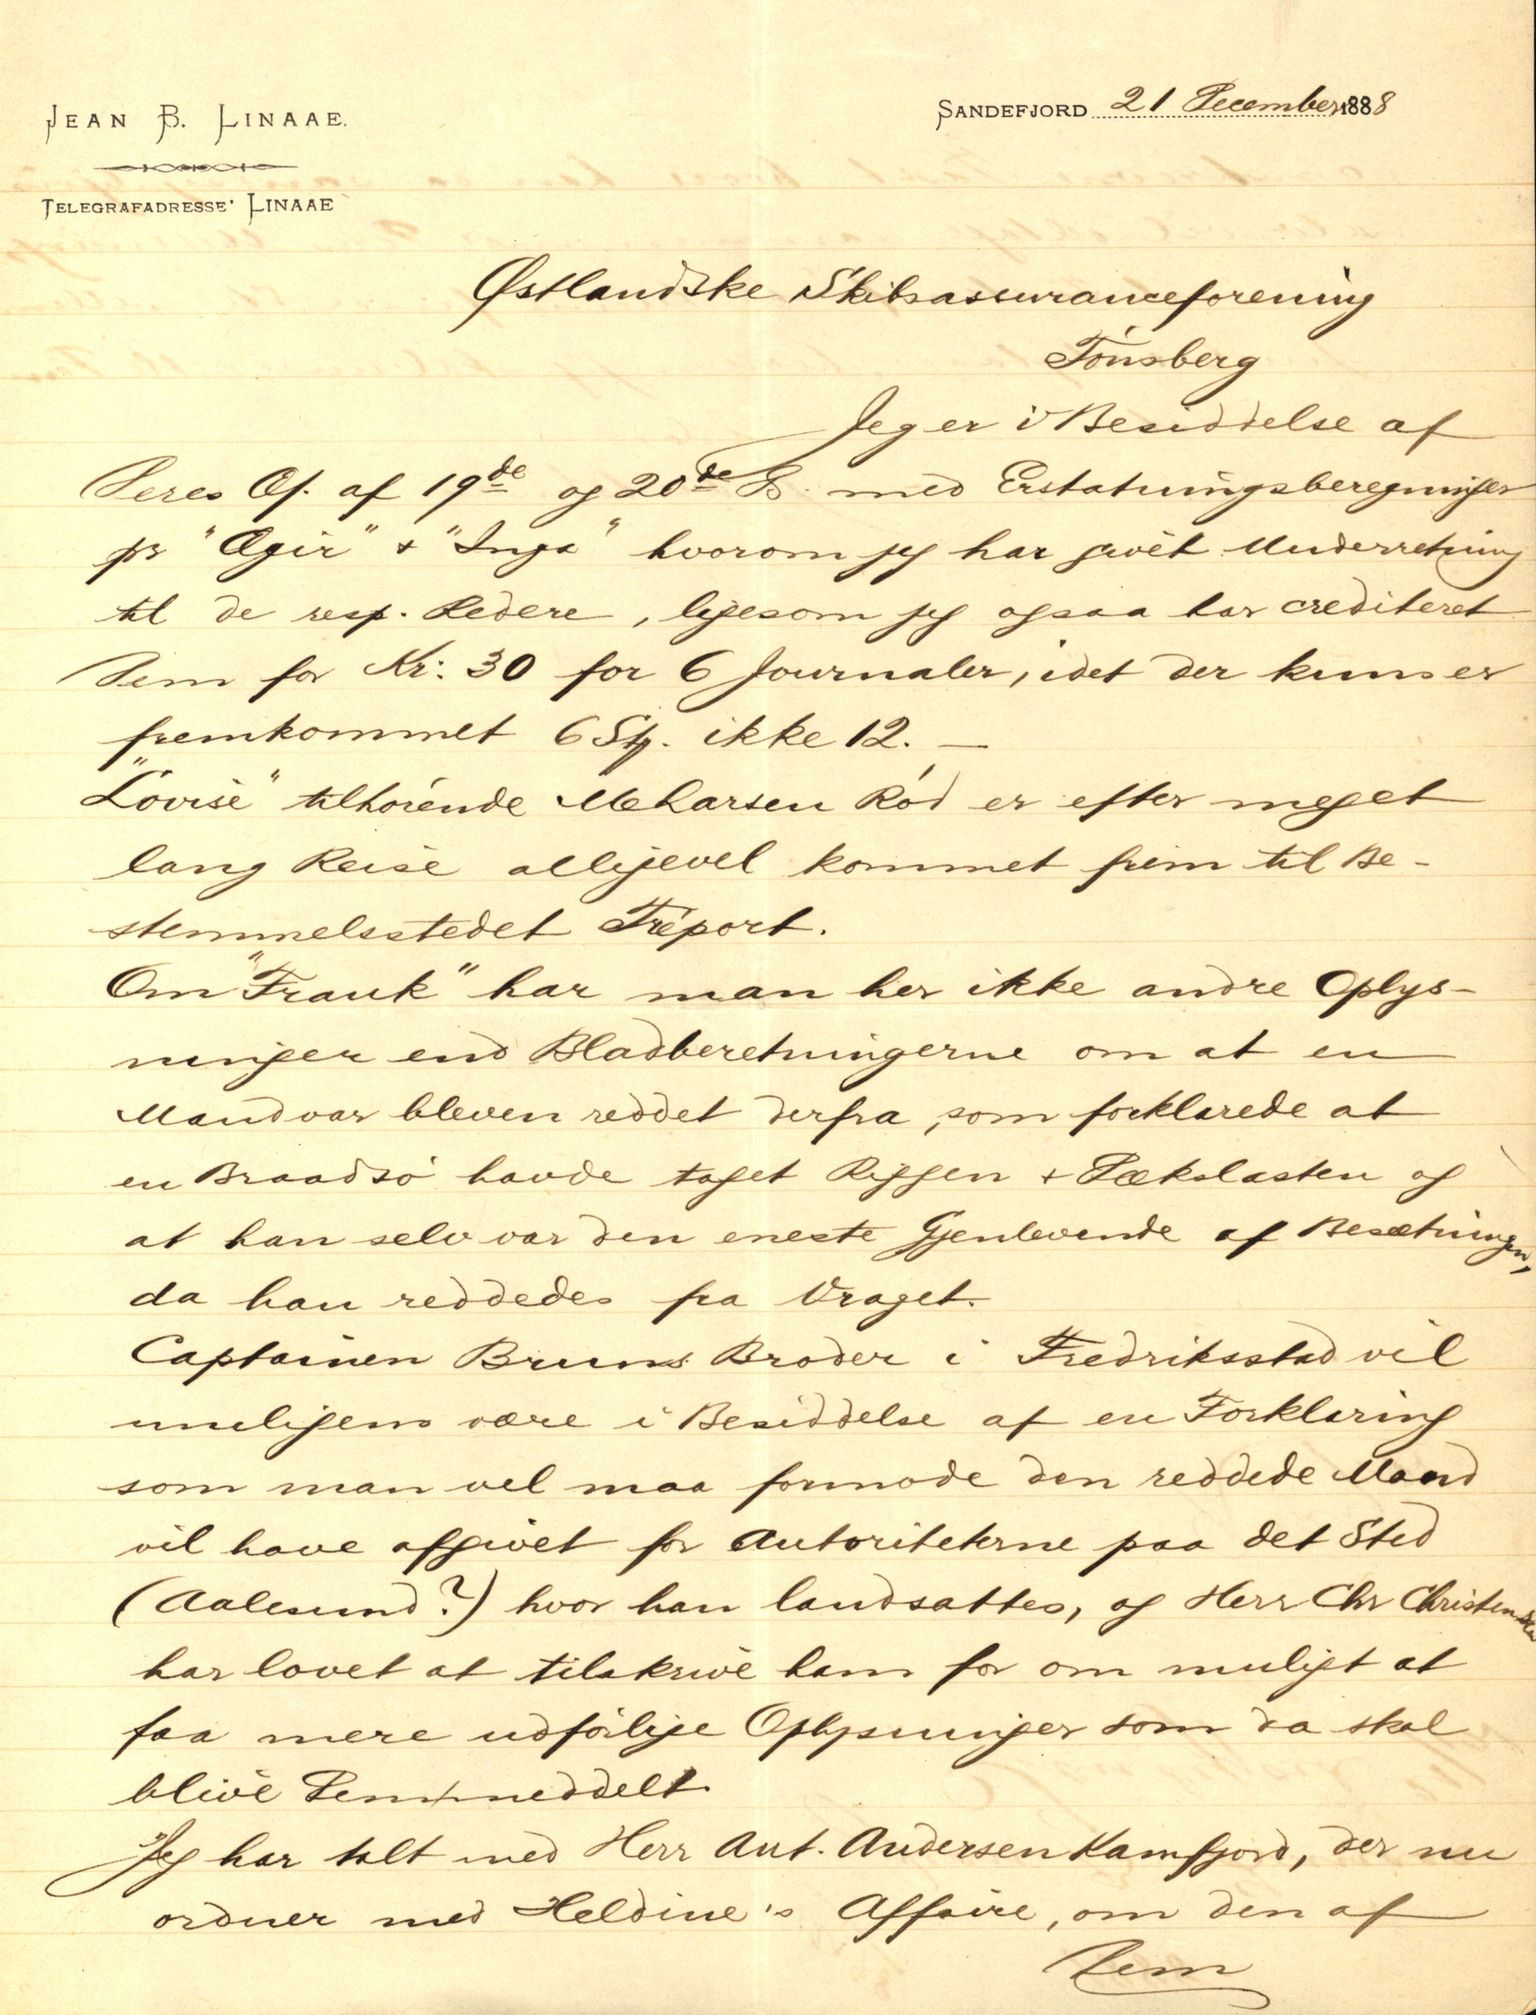 JEAN B. LINAAE.
SANDEFJORD 21 December 1888
TELEGRAFADRESSE' LINAAE
Østlandske Skibsassuranceforening
Tónsberg
Jeg er i Besiddelse af
Deres Op. af 19de og 20de Ds. med Erstatningsberegninger
pr "Ægir" & "Inga" hvorom jeg har givet Underretning
til de resp. Redere, ligesom jeg ogsaa har crediteret
Dem for Kr: 30 for 6 Journaler, idet der kun er
fremkommet 6 Stk. ikke 12. —
"Lovise" tilhórende M Larsen Ród er efter meget
lang Reise alligevel kommet frem til Be-
stemmelsstedet Tréport.
Om "Frank" har man her ikke andre Oplys-
ninger end Bladberetningerne om at en
Mand var bleven reddet derfra, som forklarede at
en Braadsó havde taget Riggen & Dækslasten og
at han selv var den eneste Gjenlevende af Besætningen,
da han reddedes fra Vraget.
Captainen Bruns Broder i Fredriksstad vil
muligens være i Besiddelse af en Forklaring
som man vel maa formode den reddede Mand
vil have afgivet for Autoriteterne paa det Sted
(Aalesund?) hvor han landsattes, og Herr Chr Christensen
har lovet at tilskrive ham for om muligt at
faa mere udfórlige Oplysninger som da skal
blive Dem meddelt.
Jeg har talt med Herr Ant. Andersen Kamfjord, der nu
ordner med Heldine's Affaire, om den af
Dem